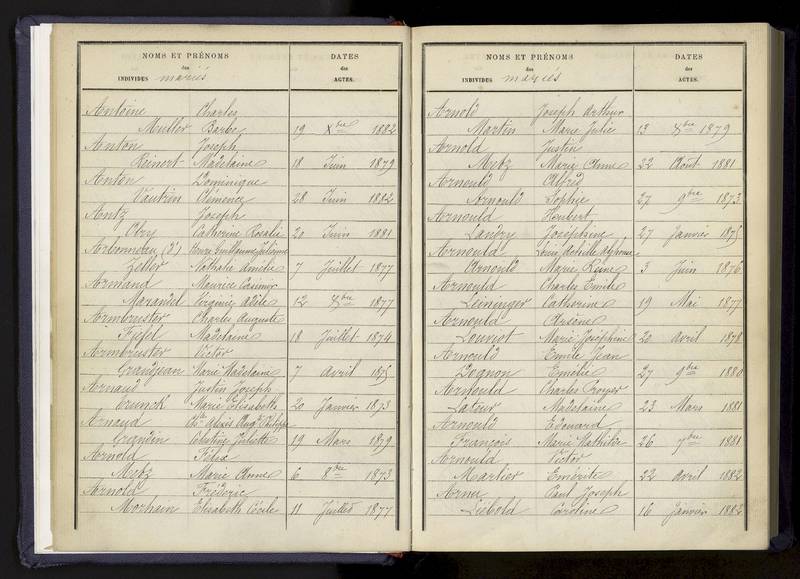 NOMS ET PRÉNOMS
des
INDIVIDUS mariés
DATES
des
ACTES.
Antoine Charles
Muller Barbe 19 Xbre 1882
Anton Joseph
Reinert Madelaine 18 Juin 1879
Anton Dominique
Vautrin Clémence 28 Juin 1882
Antz Joseph
Obry Catherine Rosalie 20 Juin 1881
Arbonneau (d') Henri Guillaume Julienne
Zeller Nathalie Amélie 7 Juillet 1877
Armand Maurice Casimir
Marandel Virginie Adèle 12 Xbre 1877
Armbruster Charles Auguste
Füfel Madelaine 18 Juillet 1874
Armbruster Victor
Grandjean Marie Madelaine 7 Avril 1875
Arnaud Justin Joseph
Crunck Marie Elisabeth 20 Janvier 1873
Arnaud Alexis Augte Philippe
Grézidin Célestine Juliette 19 Mars 1879
Arnold Félix
Metz Marie Anne 6 8bre 1873
Arnold Fréderic
Morhain Elisabeth Cécile 11 Juillet 1877
NOMS ET PRÉNOMS
des
INDIVIDUS mariés
DATES
des
ACTES.
Arnold Joseph Arthur
Martin Marie Julie 13 Xbre 1879
Arnold Justin
Metz Marie Anne 22 Août 1881
Arnould Alfred
Arnould Sophie 27 9bre 1873
Arnould Heubert
Landry Joséphine 27 Janvier 1875
Arnould Louis Achille Alphonse
Arnould Marie Reine 3 Juin 1876
Arnould Charles Emile
Leininger Catherine 19 Mai 1877
Arnould Arsène
Louviot Marie Joséphine 20 Avril 1878
Arnould Emile Jean
Dognon Emélie 27 9bre 1880
Arnould Charles Prosper
Latour Madelaine 23 Mars 1881
Arnould Edouard
François Marie Mathilde 26 7bre 1881
Arnould Victor
Marlier Emérite 22 Avril 1882
Arnu Paul Joseph
Liebold Caroline 16 Janvier 1882